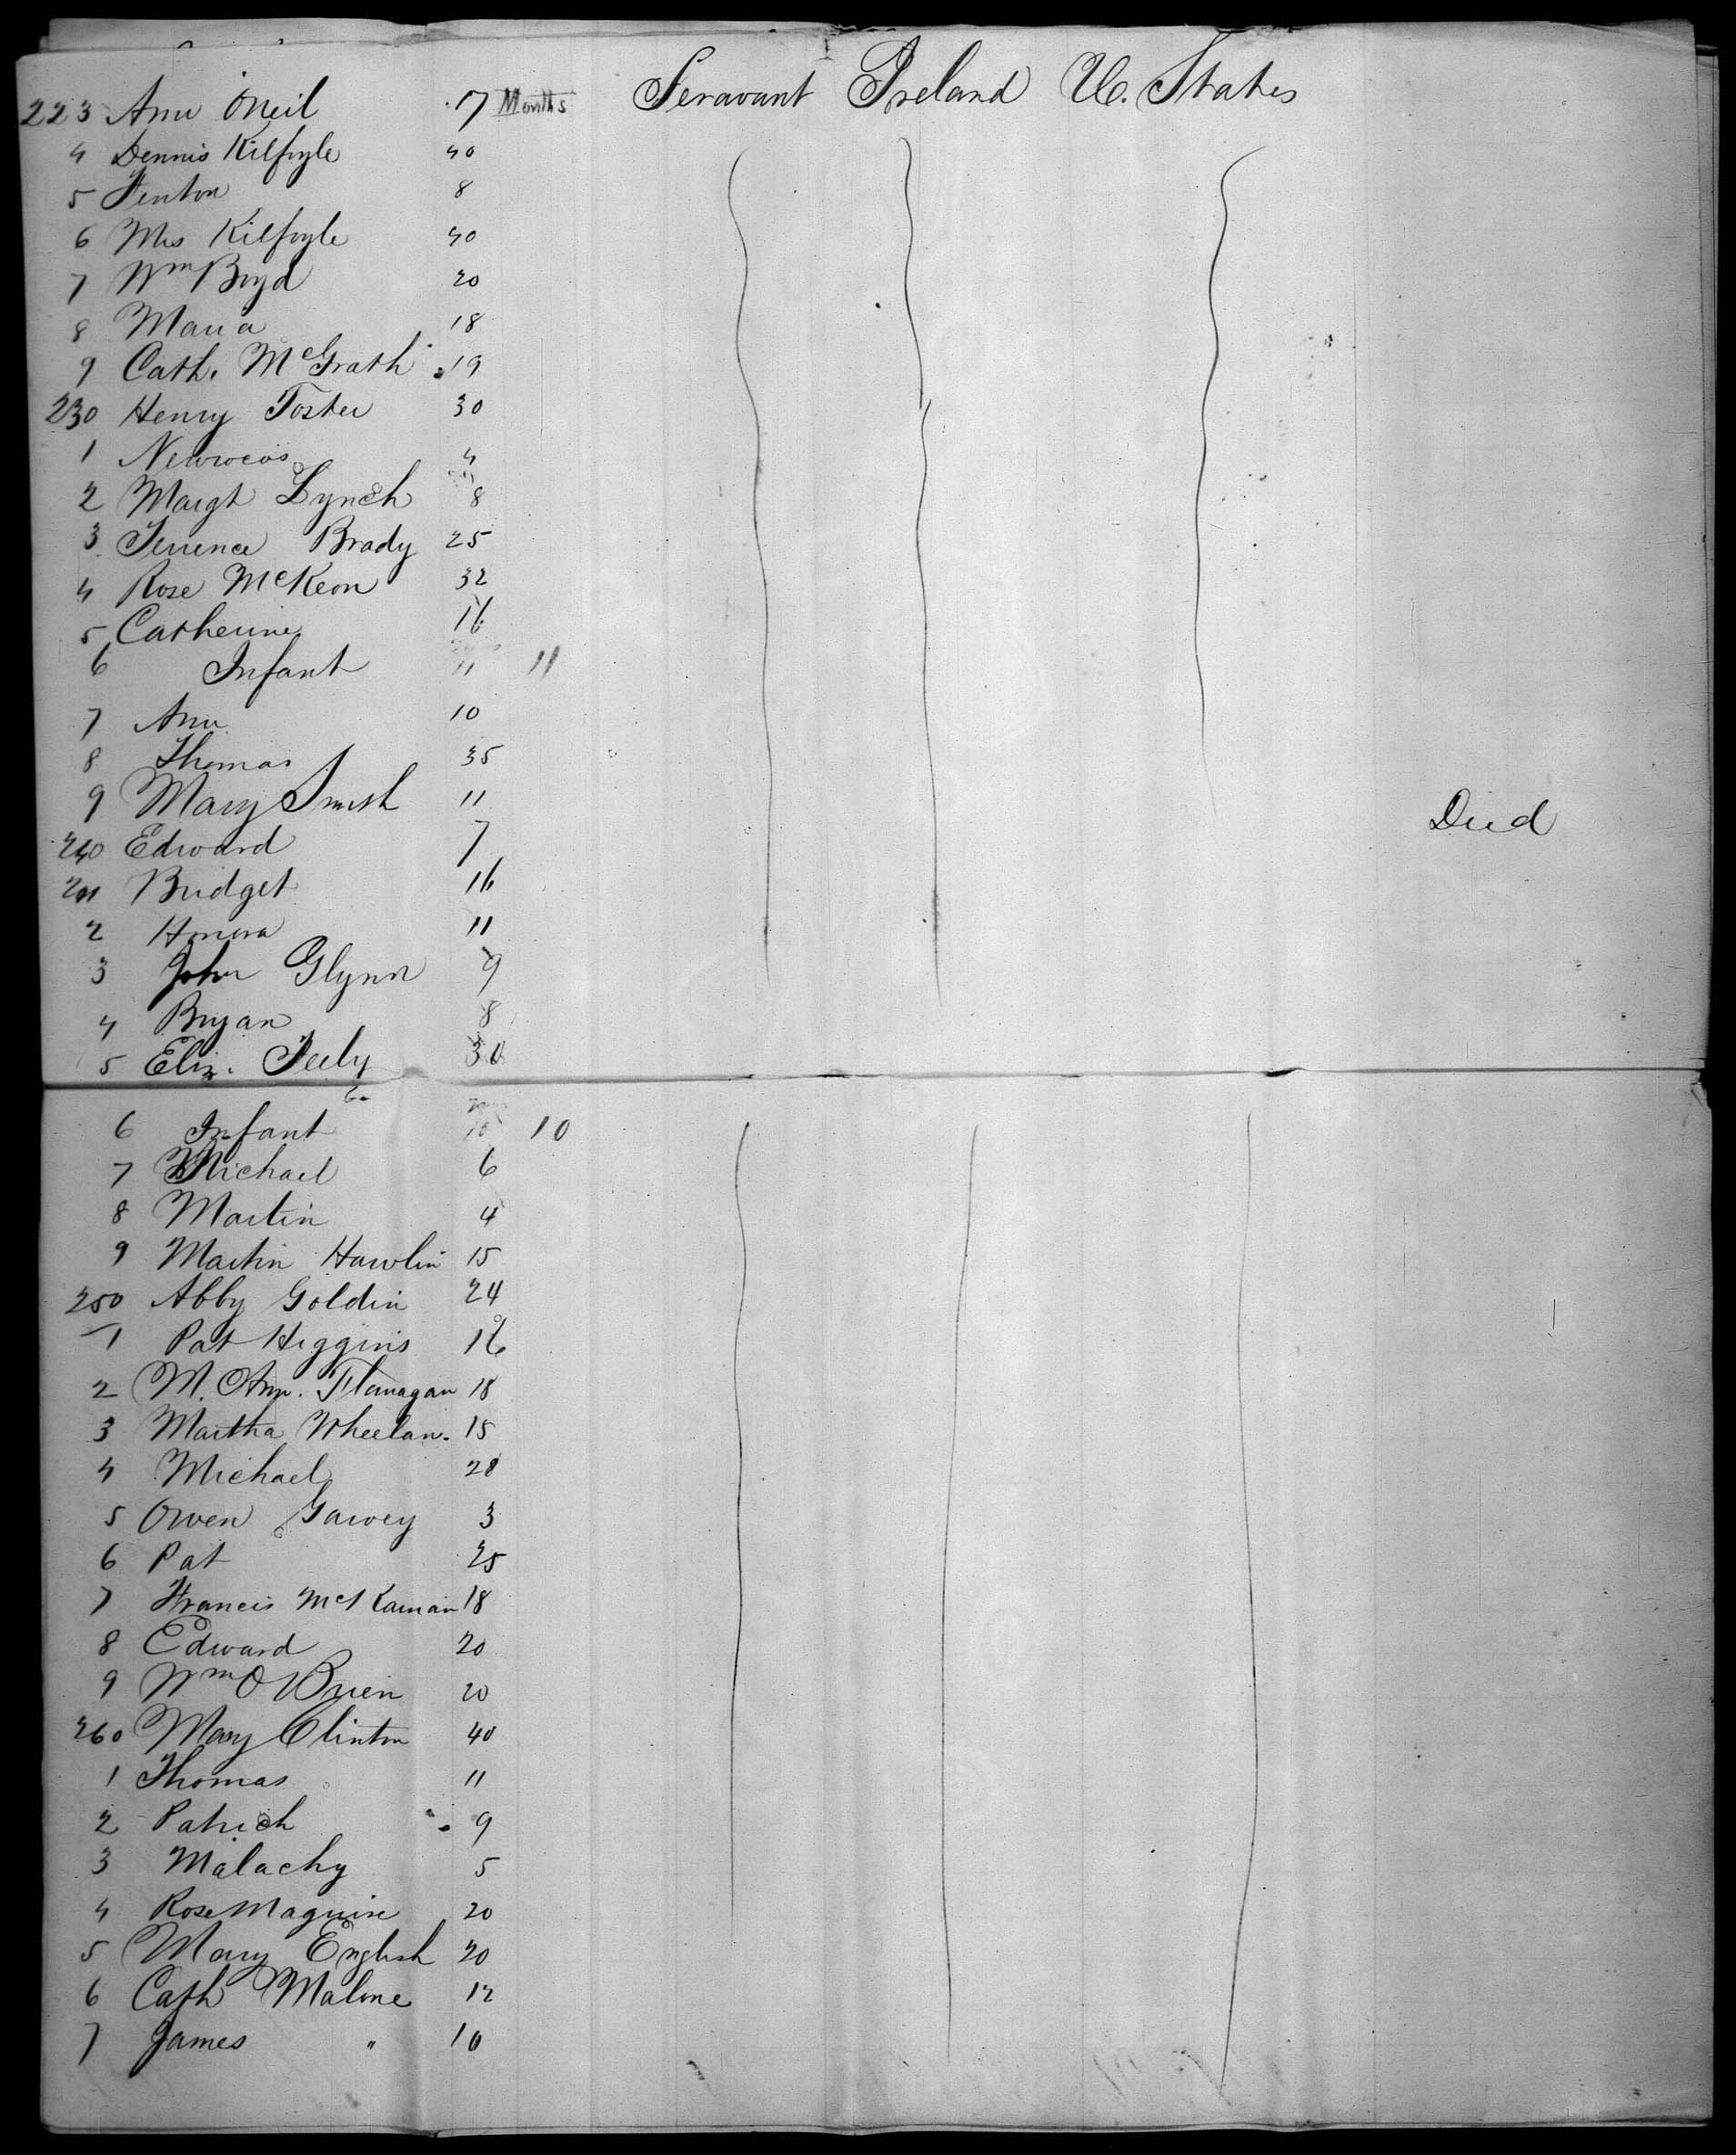 223 Ann ONeil 17 Months Seravant Ireland U. States
4 Dennis Kilfoyle 40
5 Fenton 8
6 Mrs Kilfoyle 40
7 Wm Boyd 20
8 Maria 18
9 Cath. McGrath 19
230 Henry Foster 30
1 4
2 Margt Lynch 8
3 Terrence Brady 25
4 Rose McKeon 32
5 Catherine 16
6 Infant 11 11
7 Ann 10
8 Thomas 35
9 Mary Smith 11 Died
240 Edward 7
241 Bridget 16
2 Honora 11
3 John Glynn 9
4 Bryan 8
5 Eliz. Feely 30
6 Infant 10 10
7 Michael 6
8 Martin 4
9 Martin Hawlin 15
250 Abby Goldin 24
1 Pat Higgins 16
2 M. Ann. Flanagan 18
3 Martha Wheelan. 15
4 Michael 28
5 Owen Garvey 3
6 Pat 25
7 Francis McKarnan 18
8 Edward 20
9 Wm O Brien 20
260 Mary Clinton 40
1 Thomas 11
2 Patrick 9
3 Malachy 5
4 Rose Maguire 20
5 Mary English 20
6 Cath Malone 12
7 James " 10